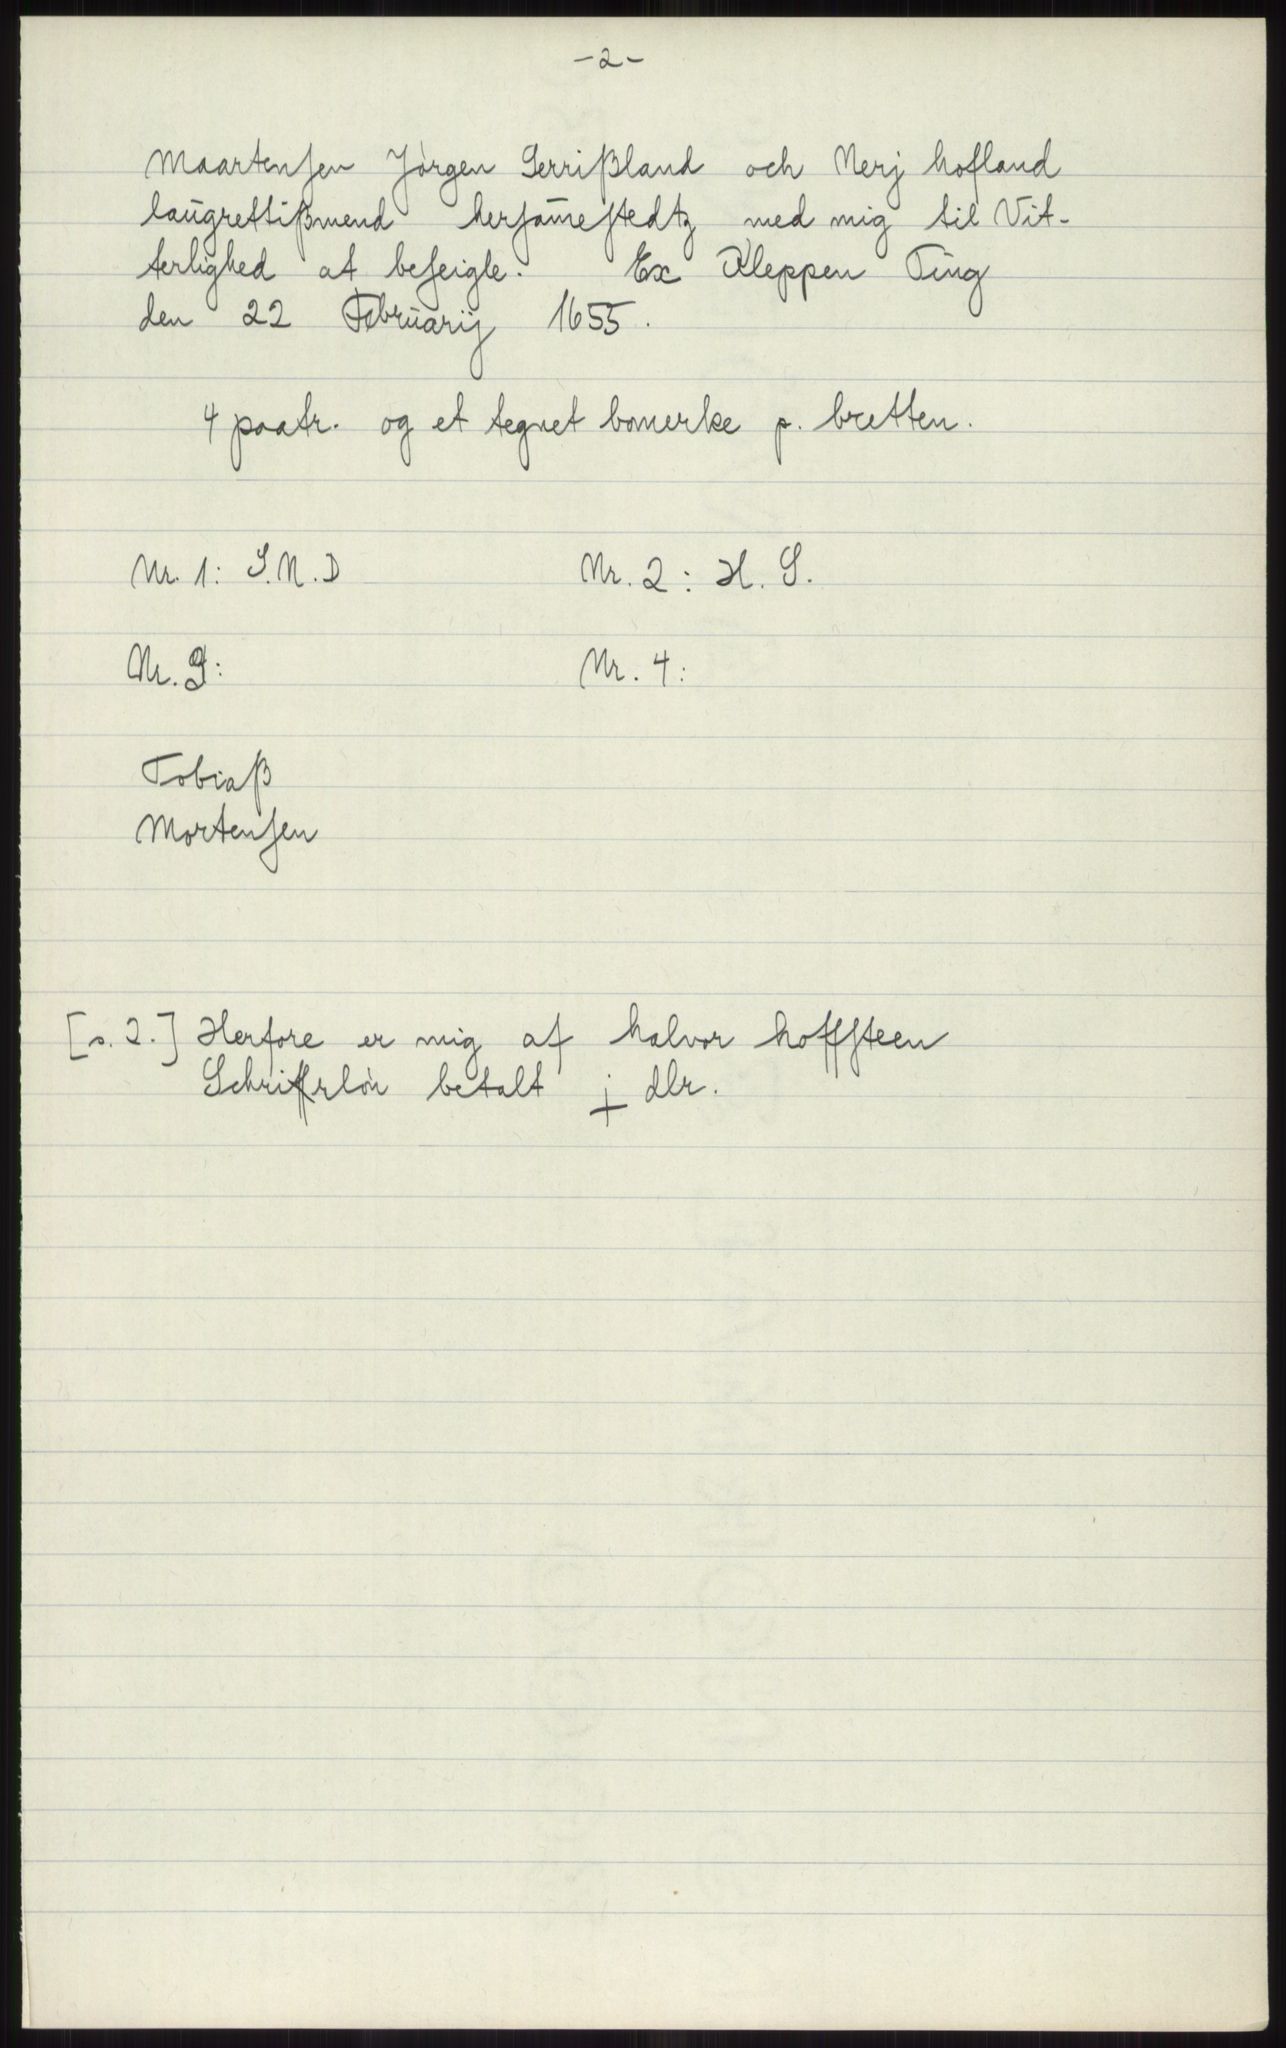 -2-
Maartensen Jørgen Serrißland och Nerj hofland
laugrettißmend hersamestedtz med mig til Vit-
terlighed at beseigle. Ex Kleppen Ting
den 22 Februarij 1655.
4 paatr. og et tegnet bomerke p. bretten.
Nr. 1: S.N.D Nr. 2: H. S.
Nr. 3: Nr. 4:
Tobiaß
Mortensen
[s. 2.] Herfore er mig af halvor hoffsteen
Schrifrløn betalt j dlr.